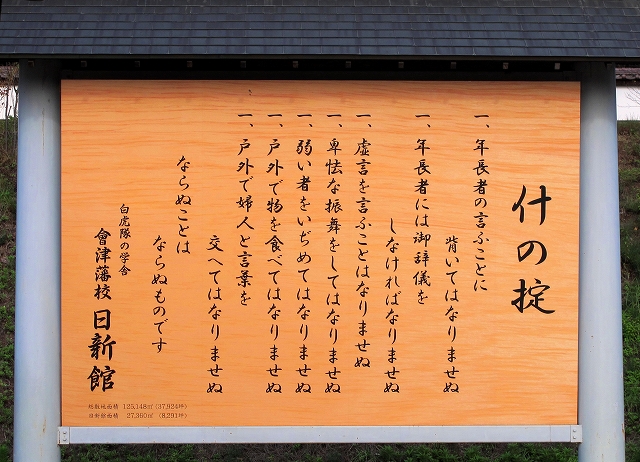 什の掟
一、年長者の言ふことに
背いてはなりませぬ
一、年長者には御辞儀を
しなければなりませぬ
一、虚言を言ふことはなりませぬ
一、卑怯な振舞をしてはなりませぬ
一、弱い者をいぢめてはなりませぬ
一、戸外で物を食べてはなりませぬ
一、戸外で婦人と言葉を
交へてはなりませぬ
ならぬことは
ならぬものです
白虎隊の学舎
會津藩校 日新館
総敷地面積 125,148㎡ (37,924坪)
日新館面積 27,360㎡ (8,291坪)